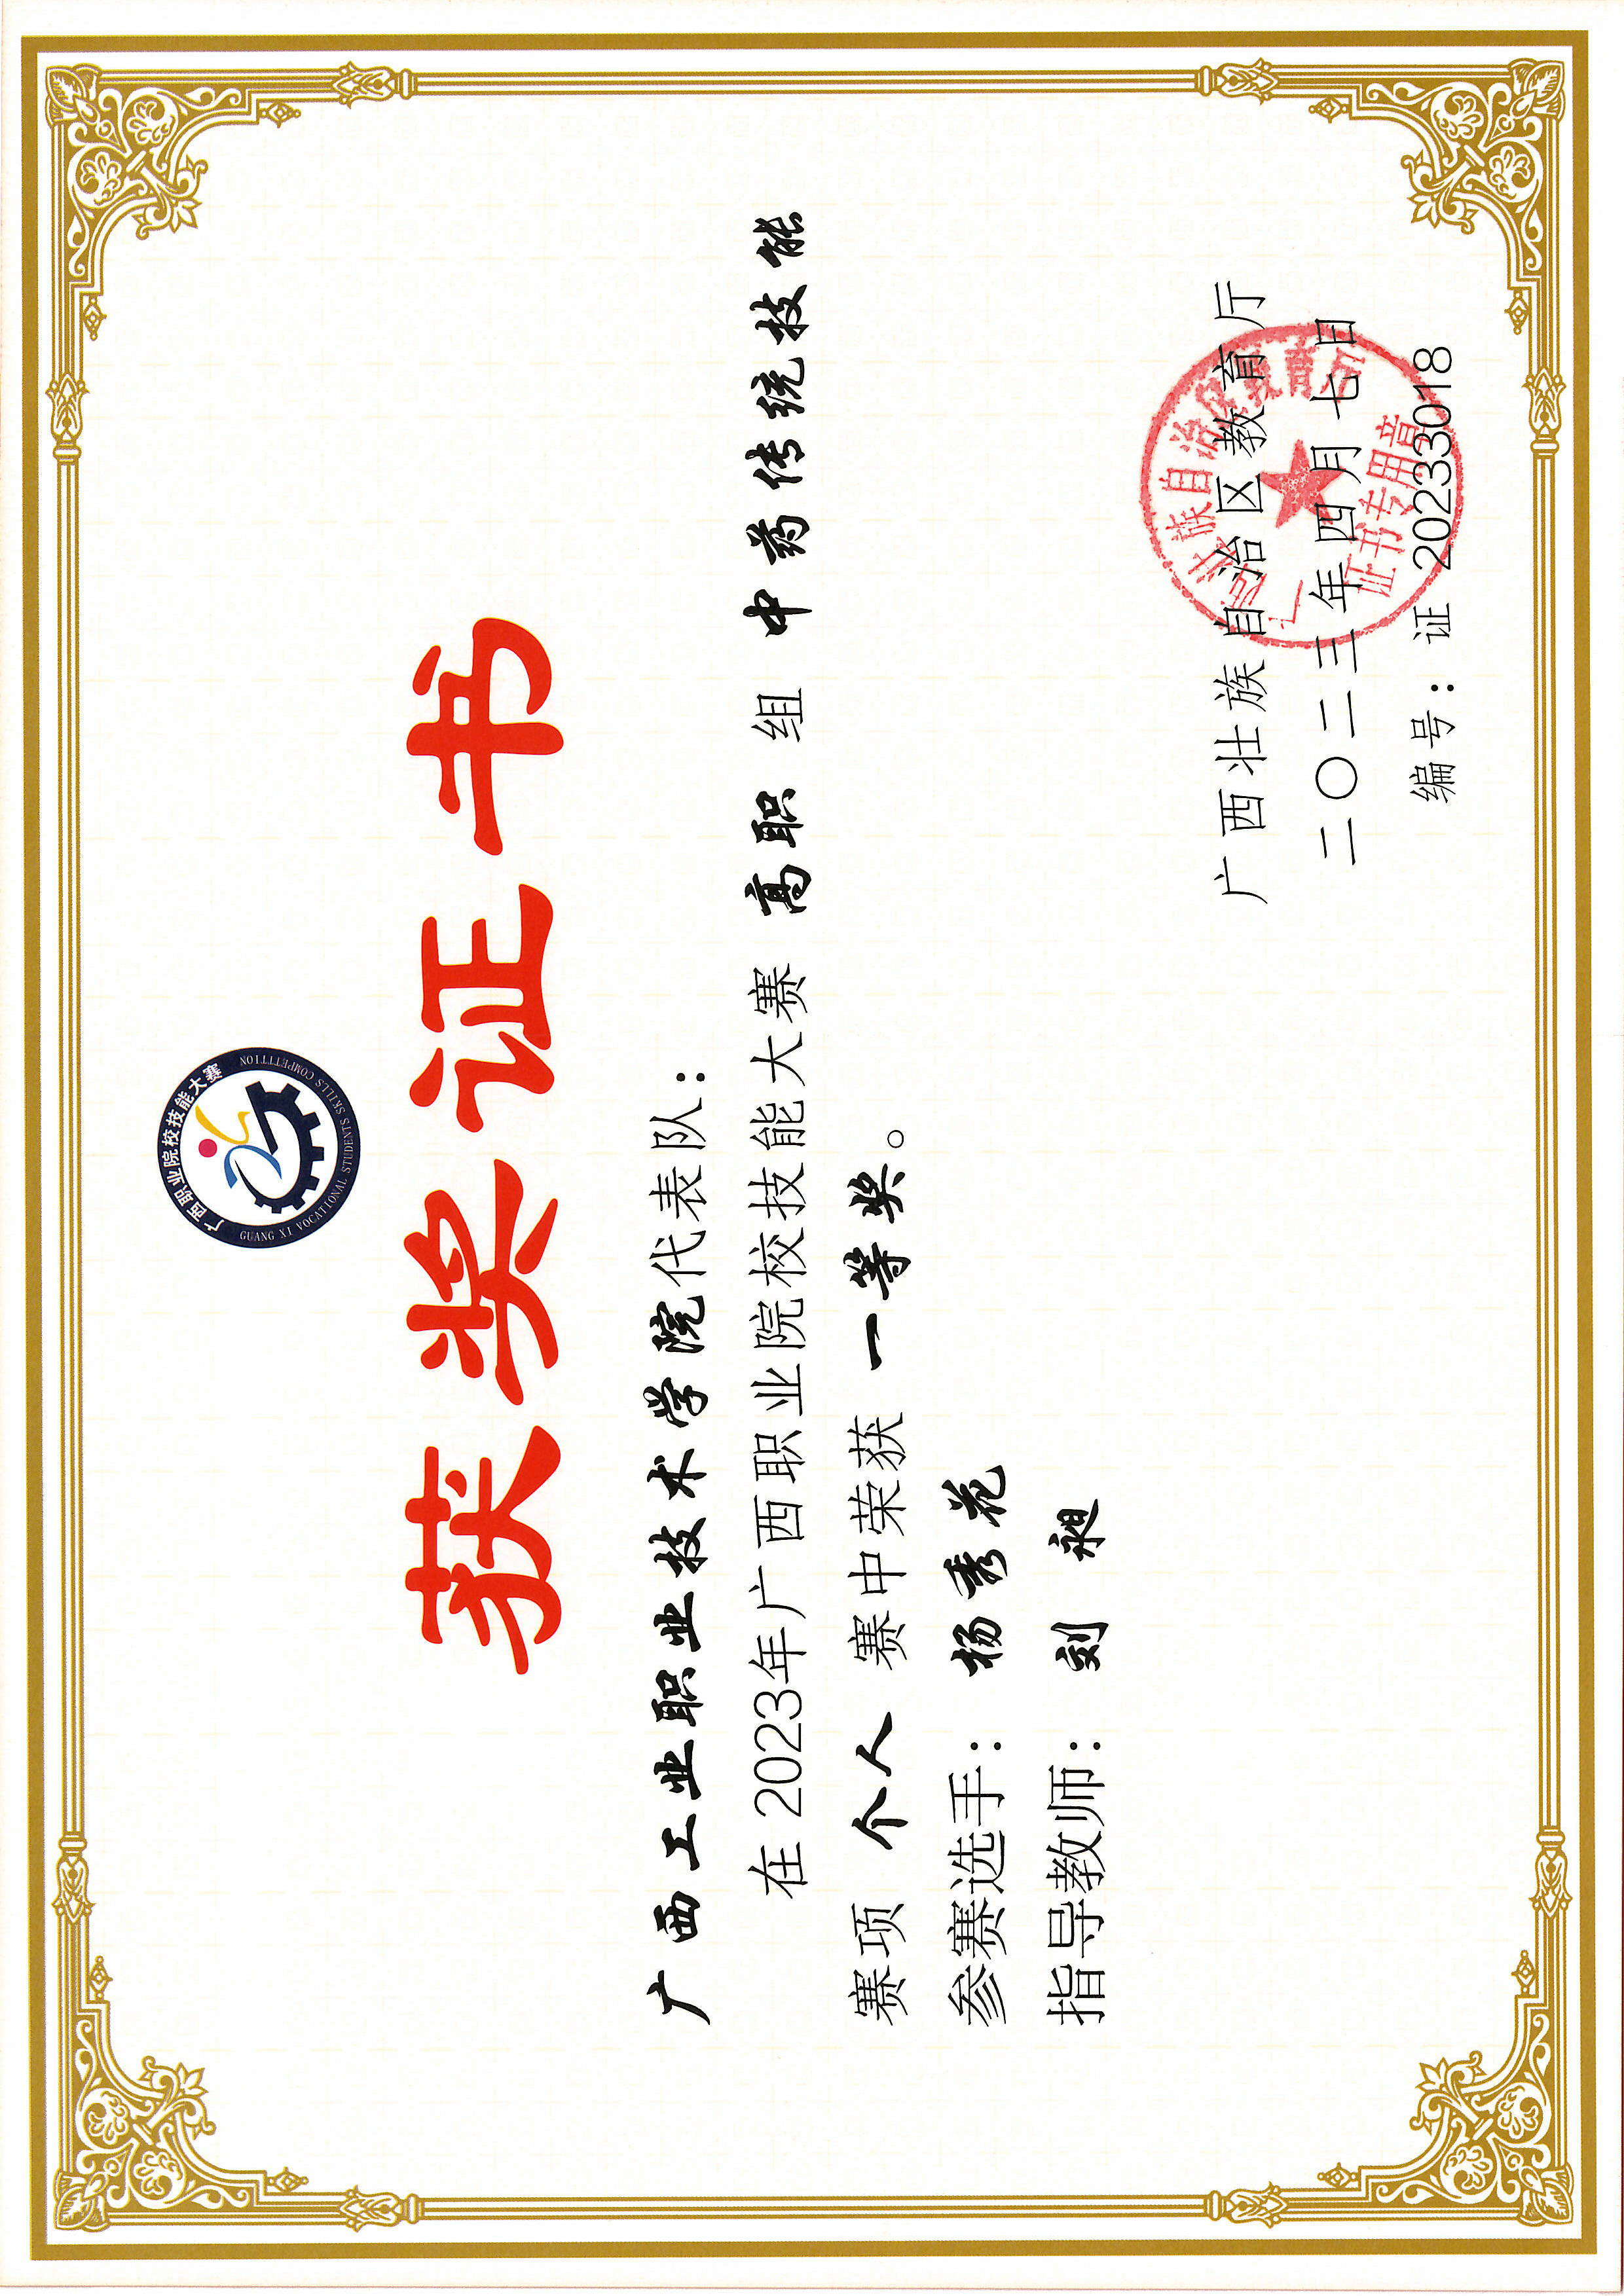 广西职业院校技能大赛
GUANG XI VOCATIONAL STUDENTS SKILLS COMPETITION
获奖证书
广西工业职业技术学院代表队：
在2023年广西职业院校技能大赛 高职 组 中药传统技能
赛项 个人 赛中荣获 一等奖。
参赛选手： 杨秀花
指导教师： 刘昶
广西壮族自治区教育厅
二〇二三年四月七日
编号：证 20233018
广西壮族自治区教育厅
证书专用章